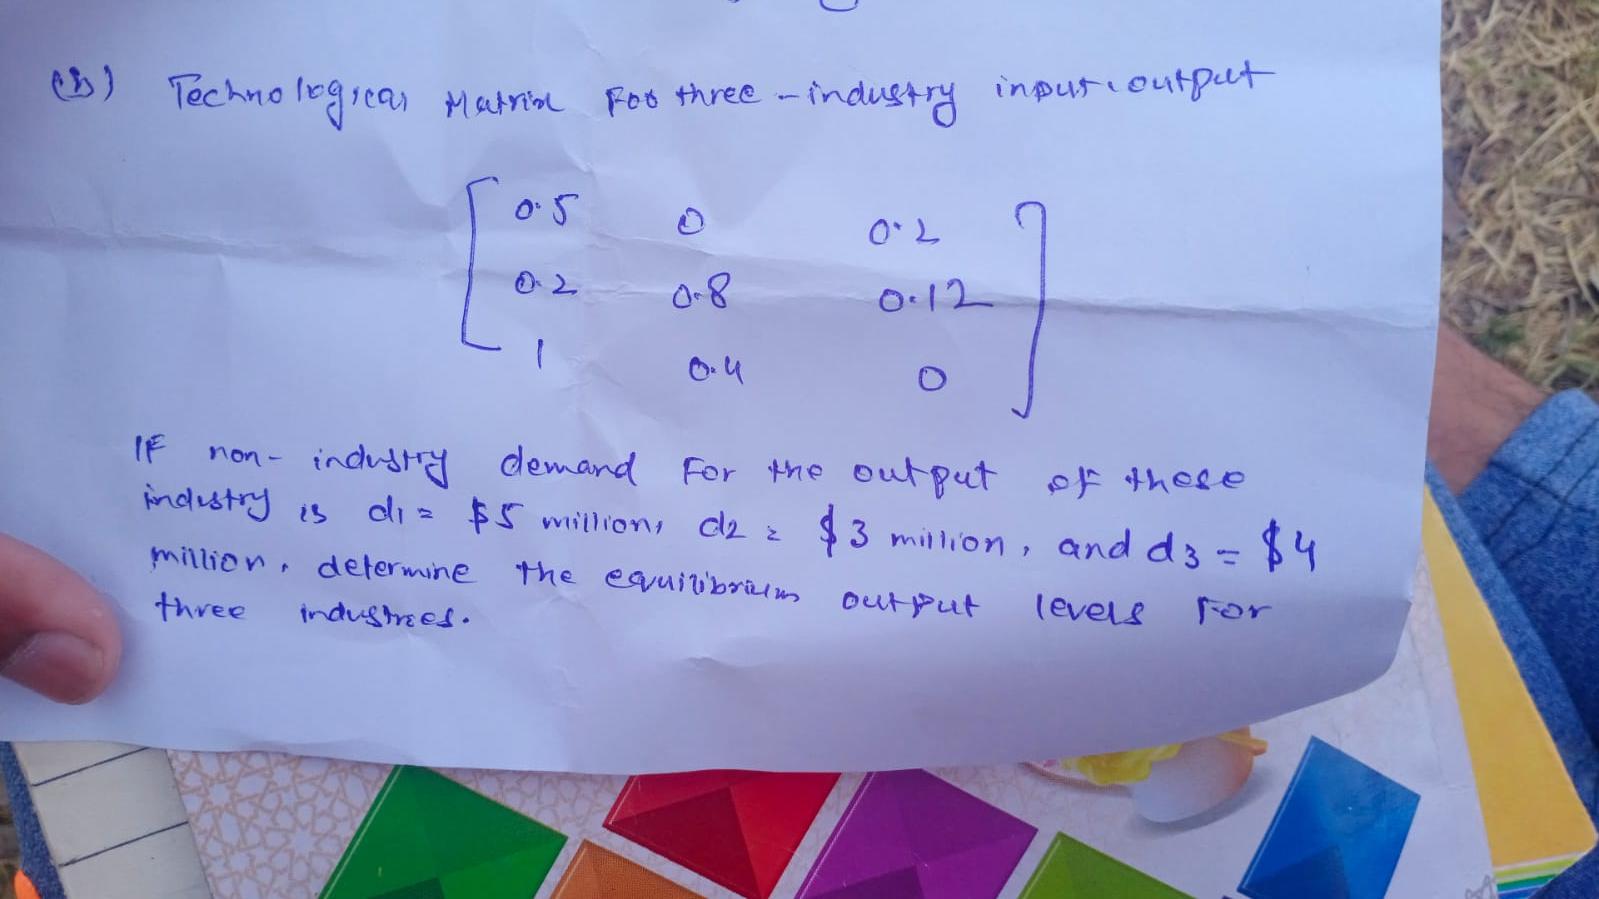 (b) Technological Matrix For three-industry input, output
0.5 0 0.2
0.2 0.8 0.12
1 0.4 0
IF non-industry demand For the output of these
industry is d1 = $5 million, d2 = $3 million, and d3 = $4
million, determine the equilibrium output levels For
three industrees.